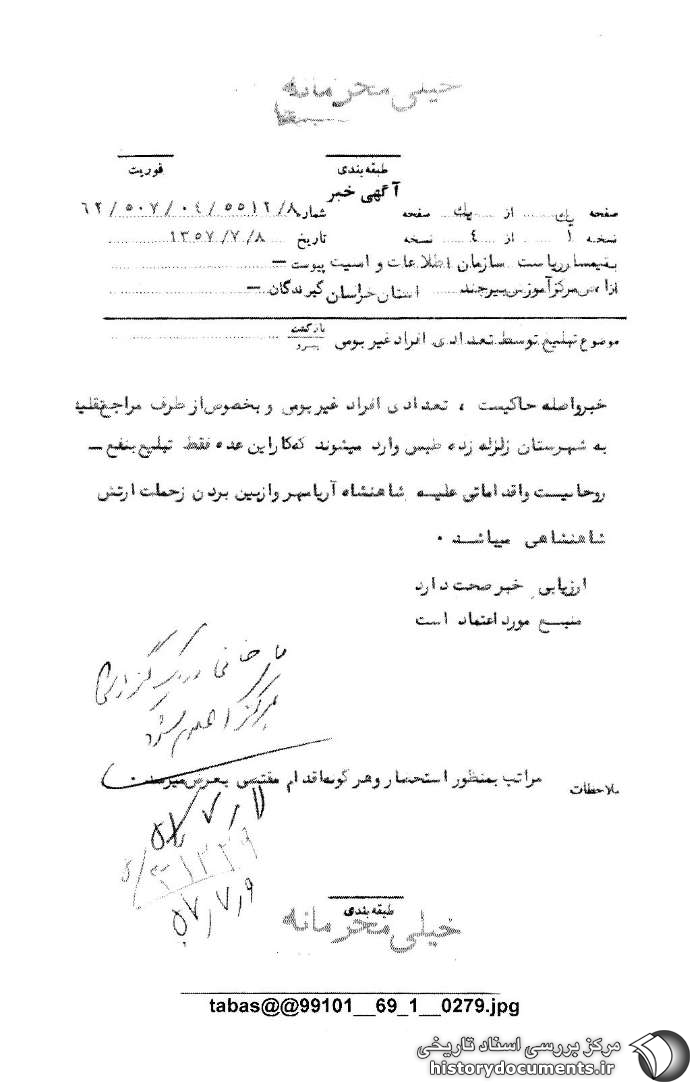 خیلی محرمانه
طبقه بندی
فوریت
آگهی خبر
صفحه یك از یك صفحه
شماره ۶۲/۵۰۷/۰۴/۵۵۱۲/۸
نسخه ۱ از ٤ نسخه
تاریخ ۱۳۵۷/۷/۸
ریاست سازمان اطلاعات و امنیت
پیوست —
مرکزآموزش بیرجند استان خراسان
گیرندگان —
موضوع تبلیغ توسط تعدادی افراد غیر بومی
بازگشت
خبرواصله حاکیست ، تعدادی افراد غیر بومی و بخصوص از طرف مراجع تقلید
به شهرستان زلزله زده طبس وارد میشوند که کار این عده فقط تبلیغ بنفع —
روحانیت واقداماتی علیه شاهنشاه آریامهر وازبین بردن زحمات ارتش
شاهنشاهی میباشد .
ارزیابی خبر صحت دارد
منبع مورد اعتماد است
گزارش
بمرکز اعلام شود
ملاحظات
مراتب بمنظور استحضار وهر گونه اقدام مقتضی بعرض میرسد .
۵۷٫۷٫۹
طبقه بندی
خیلی محرمانه
tabas@@99101__69_1__0279.jpg
مرکز بررسی اسناد تاریخی
historydocuments.ir